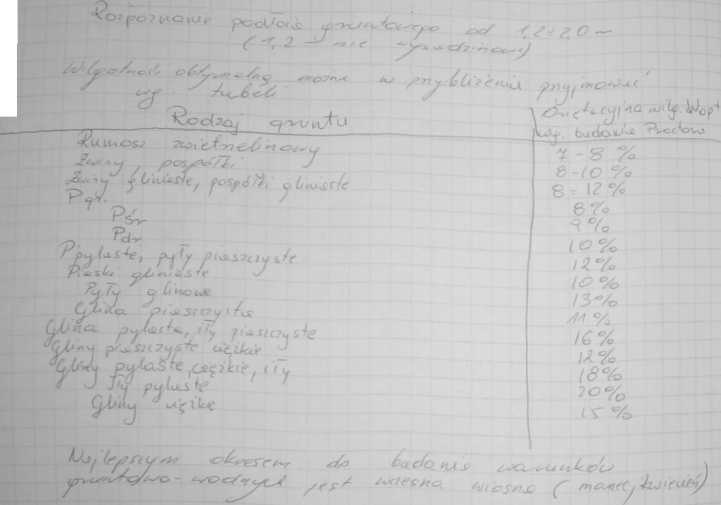 Rozpoznanie podłoża gruntowego od 1,2÷2,0 m
(1,2 – nie
Wilgotność optymalną można w przybliżeniu przyjmować
wg. tabeli
Rodzaj gruntu
Orientacyjna wilg. Wopt
wg. badania Proctora
Rumosz zwietrzelinowy 7-8 %
Żwiry, pospółki 8-10 %
Żwiry gliniaste, pospółki gliniaste 8÷12%
Pgr. 8%
Pśr 9%
Pdr 10%
Ppylaste, pyły piaszczyste 12%
Piaski gliniaste 10%
Pyły glinowe 13%
Glina piaszczysta 11%
Glina pylasta, iły piaszczyste 16%
Gliny piaszczyste ciężkie 12%
Gliny pylaste, ciężkie, iły 18%
Iły pylaste 20%
Gliny ciężkie 15%
Najlepszym okresem do badania warunków
gruntowo-wodnych jest wiosna (marzec, kwiecień)